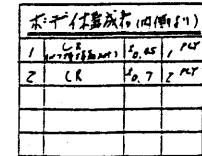 ボディ構成表(内側より)
1 CR t0.45 1 PLY
2 CR t0.7 2 PLY